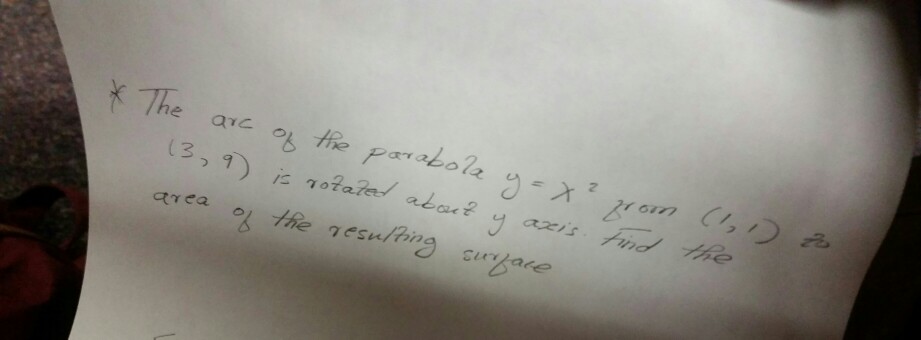 * The arc of the parabola y = x² from (1,1) to
(3,9) is rotated about y axis. Find the
area of the resulting surface